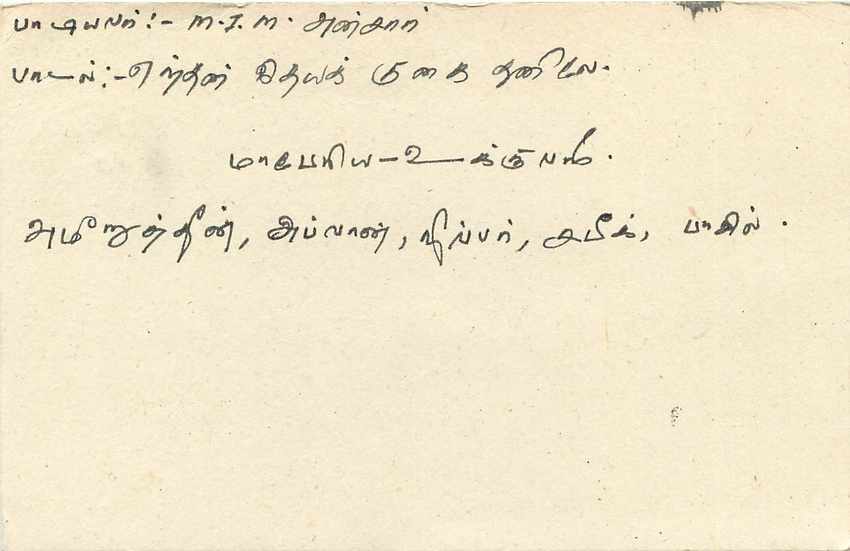 பாடியவர்:- M.I.M. அன்சார்
பாடல்:- எந்தன் இதயக் குகை தனிலே.
மாபேரிய - உக்குவளை.
அமீறுத்தீன், அப்வான், நிப்பர், சபீக், பாகில்.